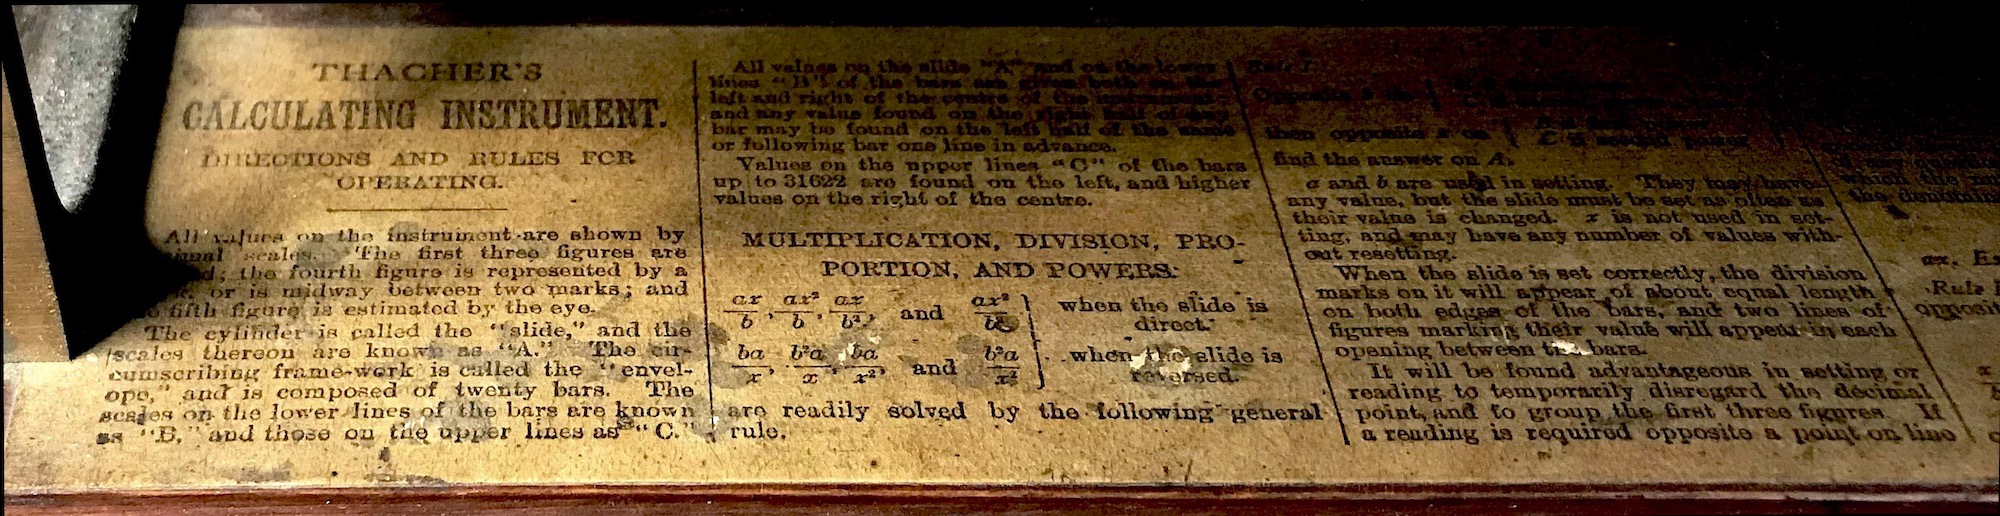 THACHER'S
CALCULATING INSTRUMENT.
DIRECTIONS AND RULES FOR
OPERATING.
All values on the instrument are shown by
scales. The first three figures are
; the fourth figure is represented by a
or is midway between two marks; and
fifth figure is estimated by the eye.
The cylinder is called the "slide," and the
scales thereon are known as "A." The cir-
cumscribing frame-work is called the "envel-
ope," and is composed of twenty bars. The
scales on the lower lines of the bars are known
as "B," and those on the upper lines as "C."
All values on the slide "A" and on the lower
lines "B" of the bars are
left and right of the centre of the instrument
and any value found on the right half of any
bar may be found on the left half of the same
or following bar one line in advance.
Values on the upper lines "C" of the bars
up to 31622 are found on the left, and higher
values on the right of the centre.
MULTIPLICATION, DIVISION, PRO-
PORTION, AND POWERS:
ax/b, ax²/b, ax/b², and ax²/b² } when the slide is
direct.
ba/x, b²a/x, ba/x², and b²a/x² } when the slide is
reversed.
are readily solved by the following general
rule.
Opposite
then opposite x on
find the answer on A.
a and b are used in setting. They may have
any value, but the slide must be set as often as
their value is changed. x is not used in set-
ting, and may have any number of values with-
out resetting.
When the slide is set correctly, the division
marks on it will appear of about equal length
on both edges of the bars, and two lines of
figures marking their value will appear in each
opening between the bars.
It will be found advantageous in setting or
reading to temporarily disregard the decimal
point, and to group the first three figures. If
a reading is required opposite a point on line
which the
the
ax.
Rule